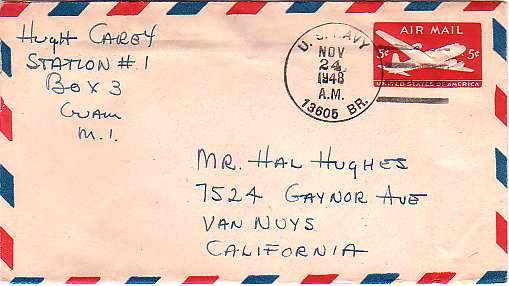 Hugh Carey
Station #1
Box 3
Guam
M.I.
U.S. NAVY
NOV
24
1948
A.M.
13605 BR.
AIR MAIL
5¢ 5¢
UNITED STATES OF AMERICA
Mr. Hal Hughes
7524 Gaynor Ave
Van Nuys
California